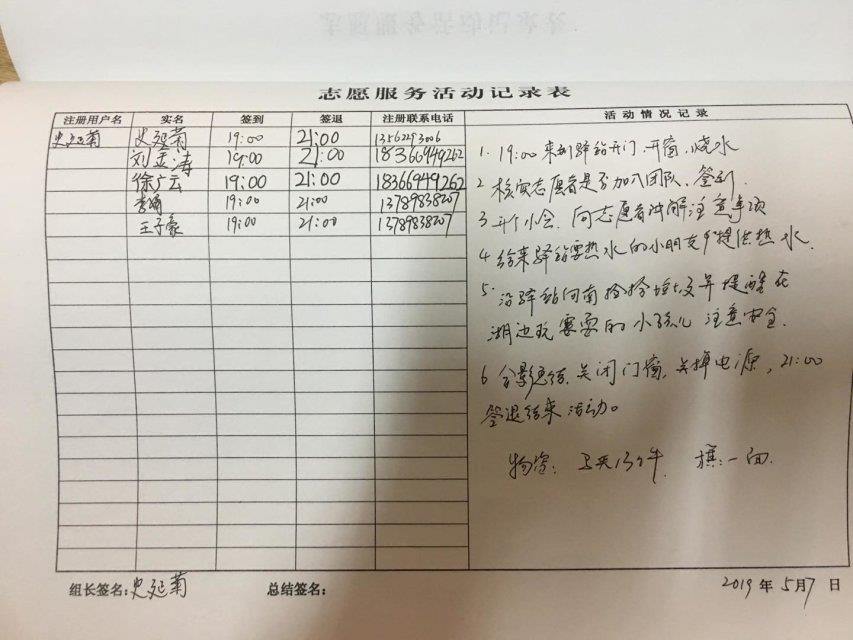 志愿服务活动记录表
注册用户名 实名 签到 签退 注册联系电话 活动情况记录
史延菊 史延菊 19:00 21:00 13562293006
刘孟涛 19:00 21:00 18366949262
徐广云 19:00 21:00 18366949262
李 19:00 21:00 13789838207
王子豪 19:00 21:00 13789838207
1. 19:00来到驿站开门、开窗、烧水
2 核实志愿者是否加入团队、签到.
3 开个小会、向志愿者讲解注意事项
4 给来驿站要热水的小朋友们提供热水.
5. 沿驿站向南捡捡垃圾并提醒在
湖边玩耍的小孩儿注意安全.
6 合影总结、关闭门窗、关掉电源,21:00
签退结束活动。
物资: 一面.
组长签名:史延菊 总结签名: 2019年5月7日